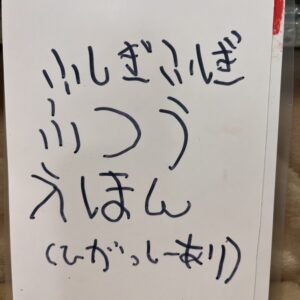 ふしぎふしぎ
ふつう
えほん
(ひがっしーあり)